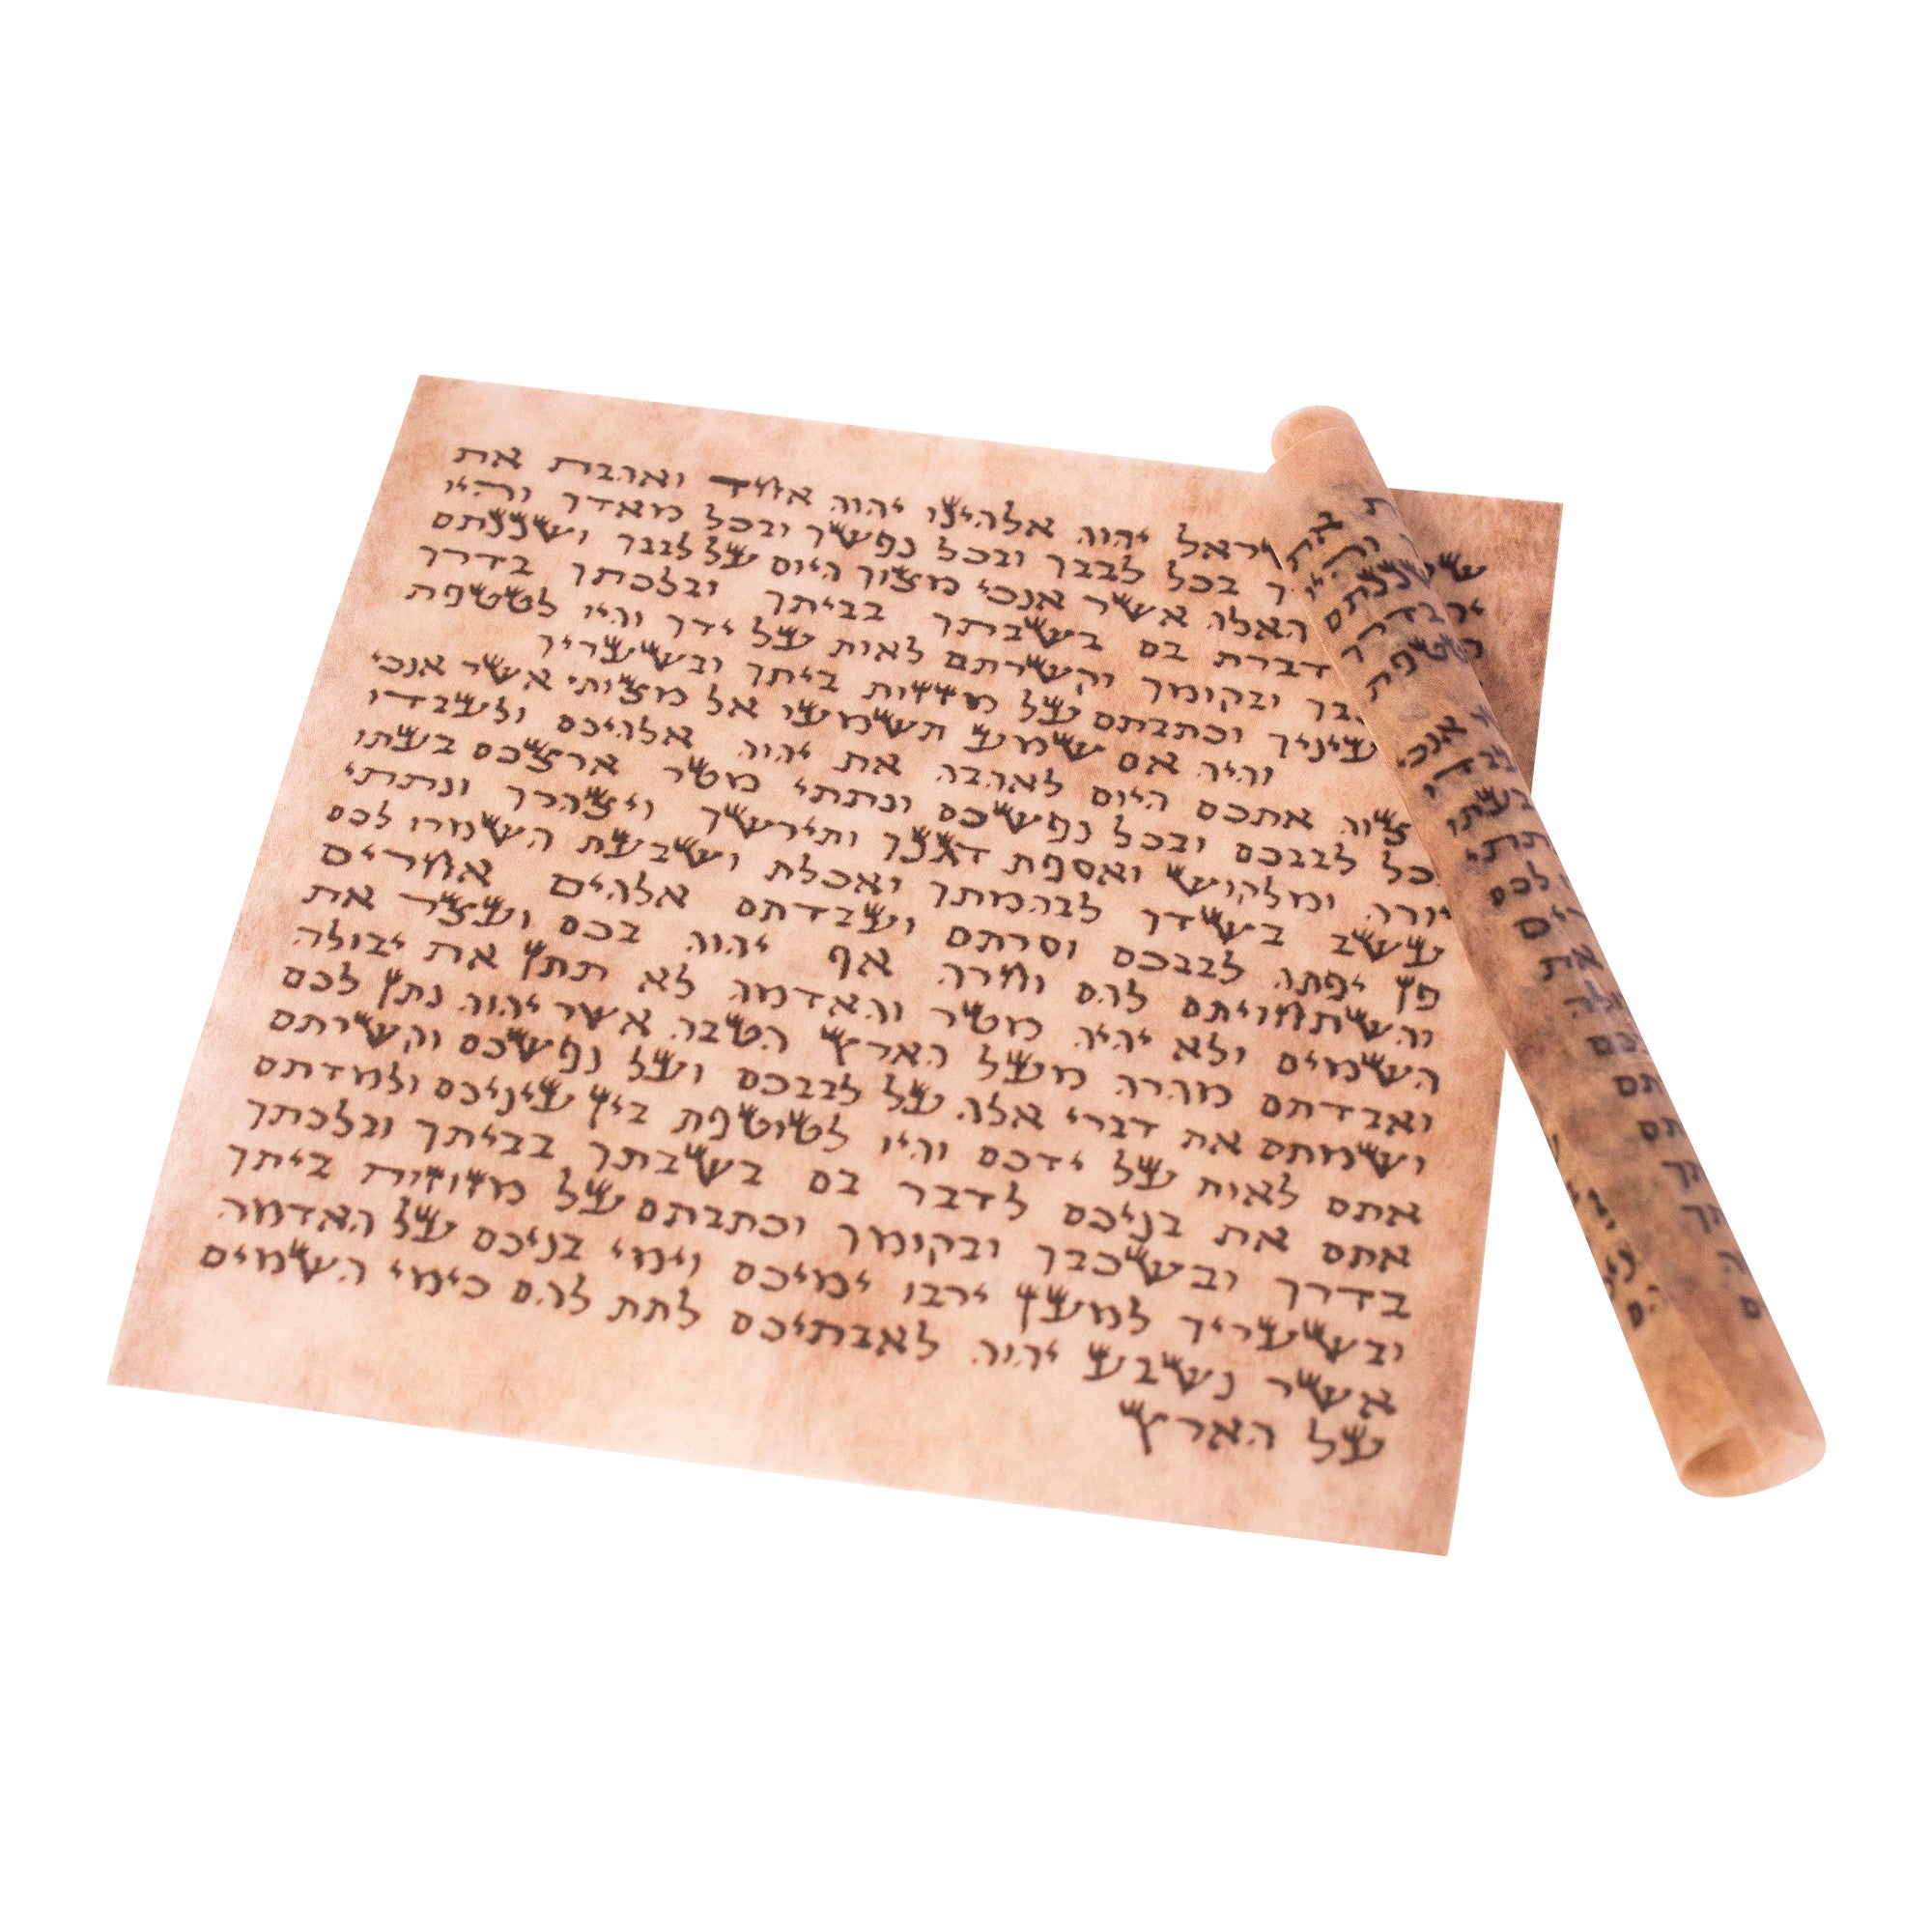 יהוה אלהינו יהוה אחד ואהבת את
בכל לבבך ובכל נפשך ובכל מאדך והיו
האלה אשר אנכי מצוך היום על לבבך ושננתם
דברת בם בשבתך בביתך ובלכתך בדרך
ובקומך וקשרתם לאות על ידך והיו לטטפת
עיניך וכתבתם על מזזות ביתך ובשעריך
והיה אם שמע תשמעו אל מצותי אשר אנכי
צוה אתכם היום לאהבה את יהוה אלהיכם ולעבדו
כל לבבכם ובכל נפשכם ונתתי מטר ארצכם בעתו
יורה ומלקוש ואספת דגנך ותירשך ויצהרך ונתתי
עשב בשדך לבהמתך ואכלת ושבעת השמרו לכם
פן יפתה לבבכם וסרתם ועבדתם אלהים אחרים
והשתחויתם להם וחרה אף יהוה בכם ועצר את
השמים ולא יהיה מטר והאדמה לא תתן את יבולה
ואבדתם מהרה מעל הארץ הטבה אשר יהוה נתן לכם
ושמתם את דברי אלה על לבבכם ועל נפשכם וקשרתם
אתם לאות על ידכם והיו לטוטפת בין עיניכם ולמדתם
אתם את בניכם לדבר בם בשבתך בביתך ובלכתך
בדרך ובשכבך ובקומך וכתבתם על מזוזות ביתך
ובשעריך למען ירבו ימיכם וימי בניכם על האדמה
אשר נשבע יהוה לאבתיכם לתת להם כימי השמים
על הארץ
את
אנכי
לכם
את